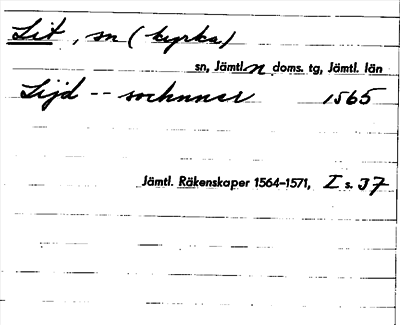 Lit, sn (kyrka)
sn, Jämtl. n doms. tg, Jämtl. län
Lijd -- sochnnar 1565
Jämtl. Räkenskaper 1564-1571, I s. 37